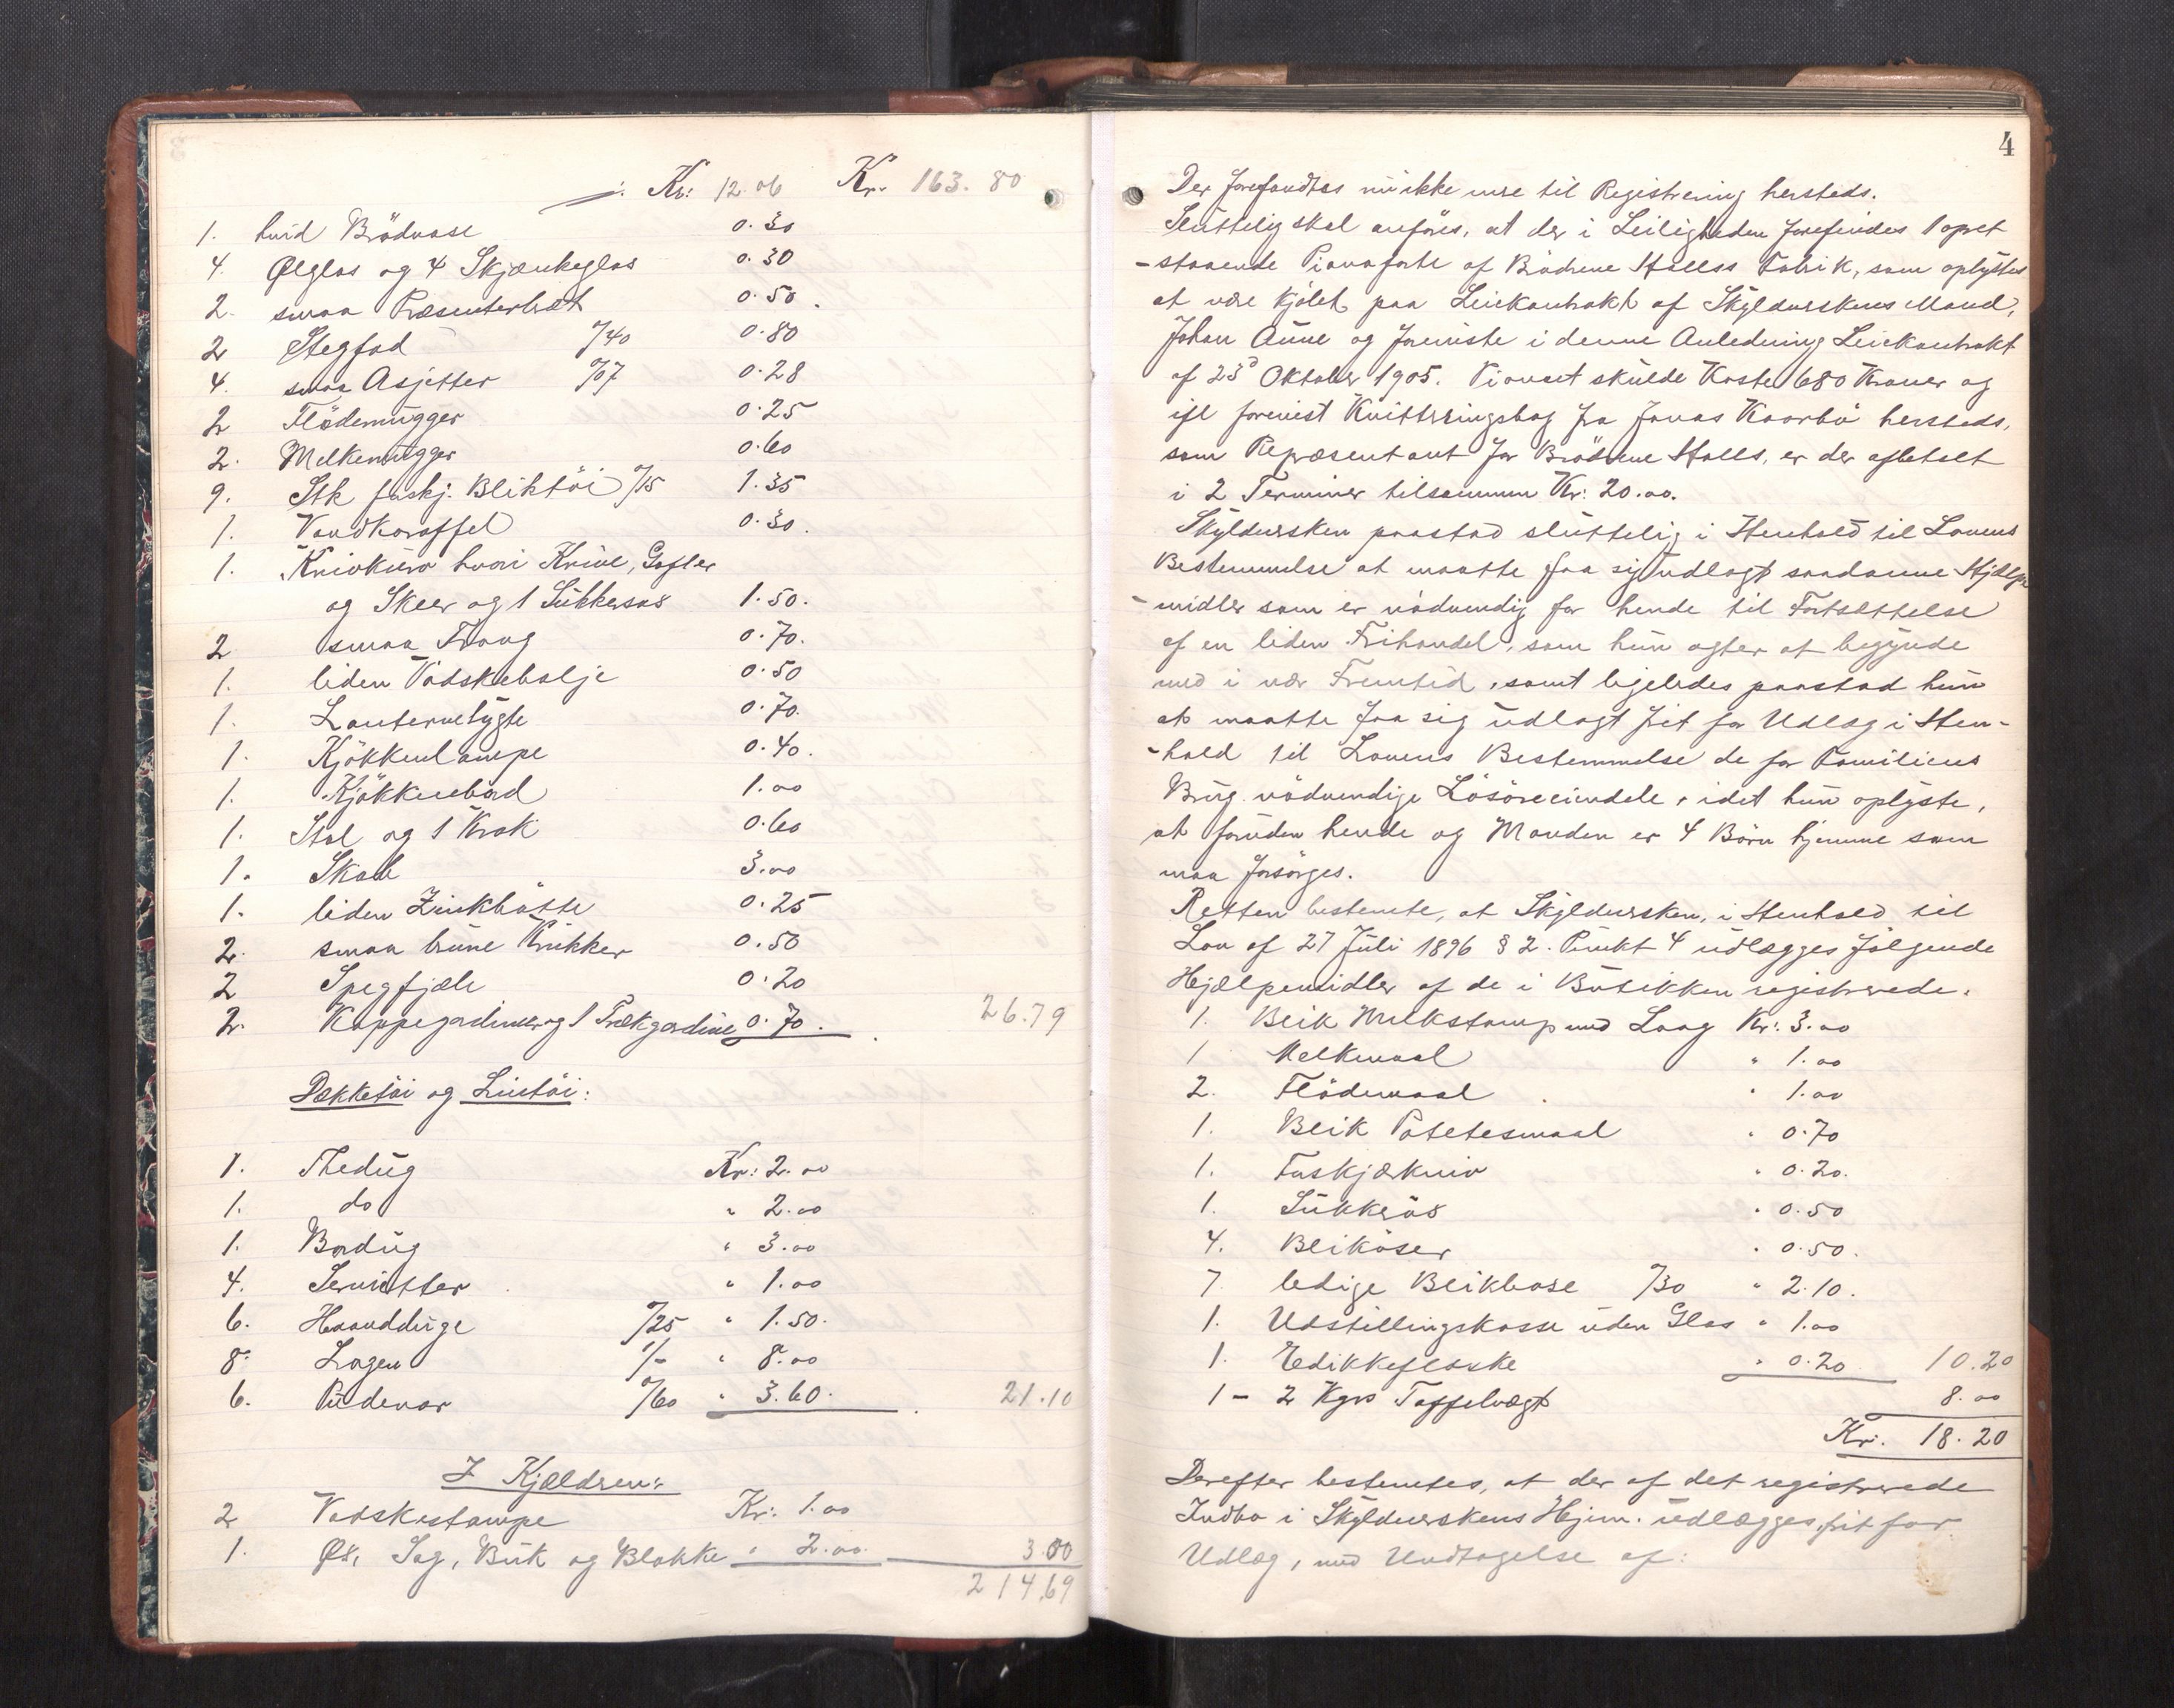 ÷ Kr: 12.06 Kr. 163.80
1. hvid Brödvase 0.30
4. Ølglas og 4 Skjænkeglas 0.30
2. smaa Præsenterbræt 0.50.
2 Stegfad %40 0.80
4. smaa Asjetter %07 0.28
2 Flödemugger 0.25
2. Melkemugger 0.60
9. Stk forskj. Bliktöi %15 1.35
1. Vandkaraffel 0.30.
1. Knivkurv hvori Knive, Gafler
og Skeer og 1 Sukkersax 1.50.
2 smaa Traug 0.70.
1. liden Vadskebalje 0.50
1. Lanternelygte 0.70.
1. Kjökkenlampe 0.40.
1. Kjökkenbord 1.00
1. Stol og 1 Krak 0.60
1. Skab 3.00
1. liden Zinkbötte 0.25
2. smaa brune Krukker 0.50
2 Spegfjæle 0.20
2. Kappegardiner og 1 Trækgardine 0.70. 26.79
Dækketöi og Lintöi:
1. Thedug Kr: 2.00
1. do " 2.00
1. Bordug " 3.00
4. Servietter " 1.00
6. Haandduge %25 " 1.50.
8. Lagen 1/- " 8.00
6. Pudevar %60 " 3.60. 21.10
I Kjælderen:
2 Vadskestampe Kr: 1.00
1. Øx, Sag, Buk og Blokke " 2.00. 3.00
214,69
4
Der forefandtes nu ikke mere til Registrering hersteds.
Sluttelig skal anføres, at der i Leiligheden forefindes 1 opret
-staaende Pianoforte af Brödrene Halls Fabrik, som oplystes
at være kjöbt paa Leiekontrakt af Skyldnerskens Mand,
Johan Aune og foreviste i denne Anledning Leiekontrakt
af 23d Oktober 1905. Pianoet skulde koste 680 Kroner og
ifl forevist Kvitteringsbog fra Jonas Kaarbö hersteds,
som Repræsentant for Brödrene Halls, er der afbetalt
i 2 Terminer tilsammen Kr: 20.00.
Skyldnersken paastod sluttelig i Henhold til Lovens
Bestemmelse at maatte faa sig udlagt saadanne Hjælpe
-midler som er nödvendig for hende til Fortsættelse
af en liden Frihandel, som hun agter at begynde
med i nær Fremtid, samt ligeledes paastod hun
at maatte faa sig udlagt frit for Udlæg i Hen-
-hold til Lovens Bestemmelse de for Familiens
Brug nödvendige Lösöreeiendele, idet hun oplyste,
at foruden hende og Manden er 4 Börn hjemme som
maa forsörges.
Retten bestemte, at Skyldnersken, i Henhold til
Lov af 27 Juli 1896 § 2. Punkt 4 udlægges fölgende
Hjælpemidler af de i Butikken registrerede.
1. Blik Melkstamp med Laag Kr: 3.00
1 Melkemaal " 1.00
2. Flödemaal " 1.00
1. Blik Potetesmaal " 0.70
1. Faskjærkniv " 0.20.
1. Sukkerös " 0.50
4. Bliköser " 0.50.
7 ledige Blikbokse %30 " 2.10.
1. Udstillingskasse uden Glas " 1.00
1. Edikkeflaske " 0.20 10.20
1 - 2 Kgrs Taffelvægt 8.00
Kr. 18.20
Derefter bestemtes, at der af det registrerede
Indbo i Skyldnerskens Hjem. udlægges frit for
Udlæg, med Undtagelse af: